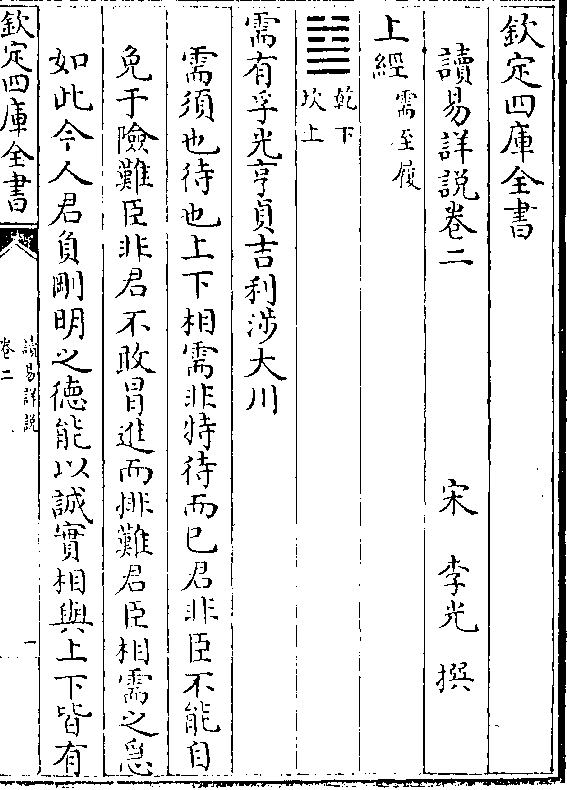 欽定四庫全書
讀易詳説卷二 宋 李光 撰
上經 需至履
䷄ 乾下 坎上
需有孚光亨貞吉利涉大川
需須也待也上下相需非特待而已君非臣不能自
免于險難臣非君不敢冒進而排難君臣相需之急
如此今人君負剛明之德能以誠實相與上下皆有
欽定四庫全書
讀易詳説
卷二
一